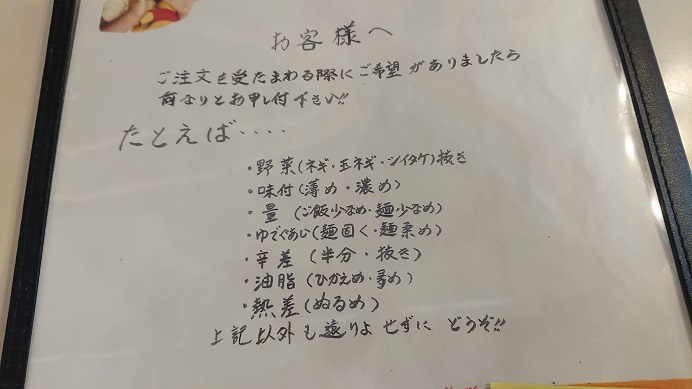 お客様へ
ご注文を受たまわる際にご希望がありましたら
何なりとお申し付下さい!!
たとえば・・・・
・野菜(ネギ・玉ネギ・シイタケ)抜き
・味付(薄め・濃め)
・量 (ご飯少なめ・麺少なめ)
・ゆでぐあい(麺固く・麺柔め)
・辛差 (半分・抜き)
・油脂 (ひかえめ・多め)
・熱差 (ぬるめ)
上記以外も遠りよせずに どうぞ!!